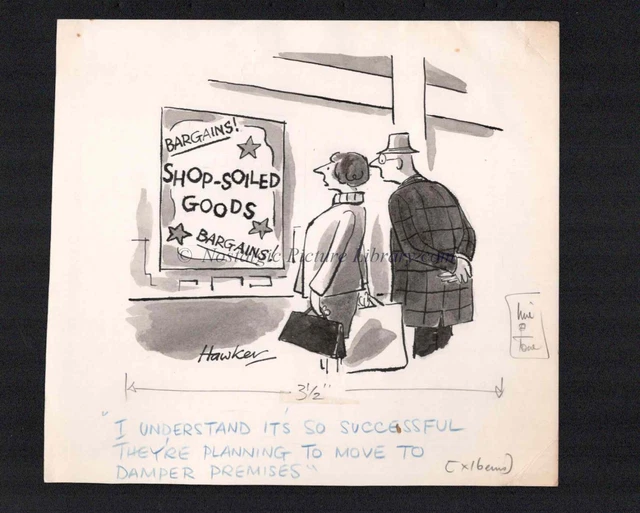 BARGAINS!
SHOP-SOILED
GOODS
BARGAINS!
© Nostalgic Picture Library.com
Hawker
line
tone
3½"
"I UNDERSTAND IT'S SO SUCCESSFUL
THEY'RE PLANNING TO MOVE TO
DAMPER PREMISES"
(x16ems)